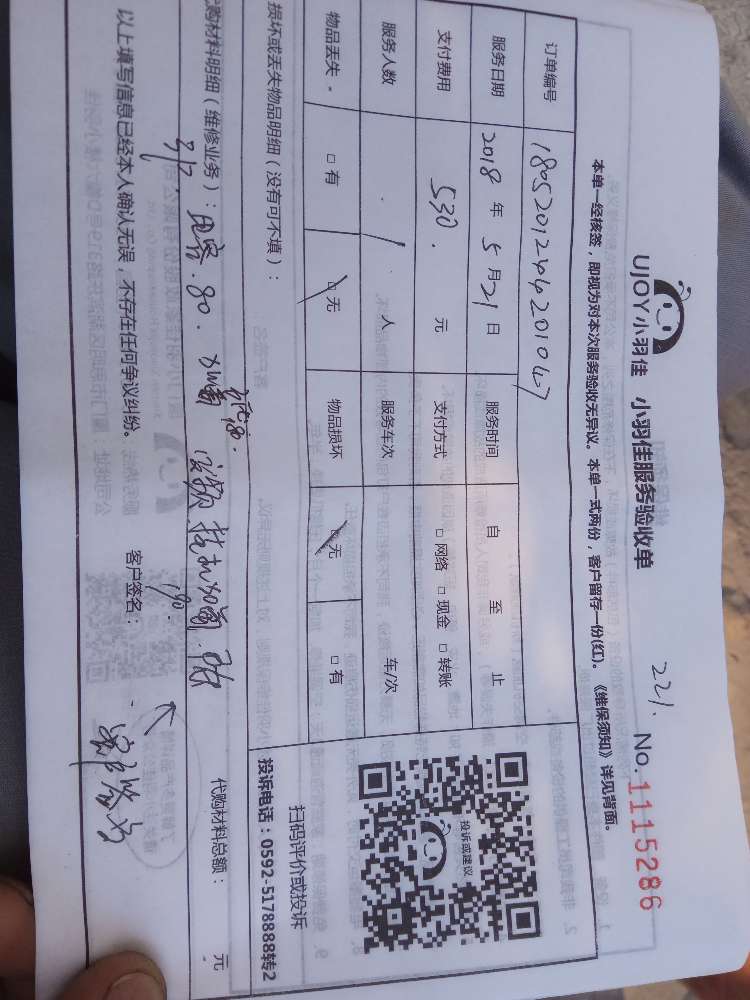 UJOY小羽佳 小羽佳服务验收单
221. No.1115286
本单一经核签，即视为对本次服务验收无异议。本单一式两份，客户留存一份(红)。《维保须知》详见背面。
订单编号
服务日期 2018 年 5 月 21 日 服务时间 自 至 止
支付费用 530. 元 支付方式 □ 网络 □ 现金 □ 转账
服务人数 1 人 服务车次 车/次
物品丢失 □ 有 □ 无 物品损坏 □ 无 □ 有
投诉或建议
扫码评价或投诉
投诉电话：0592-5178888转2
损坏或丢失物品明细（没有可不填）：
代购材料明细（维修业务）： 电容. 80. 加 190. 代购材料总额： 元
以上填写信息已经本人确认无误，不存在任何争议纠纷。 客户签名：